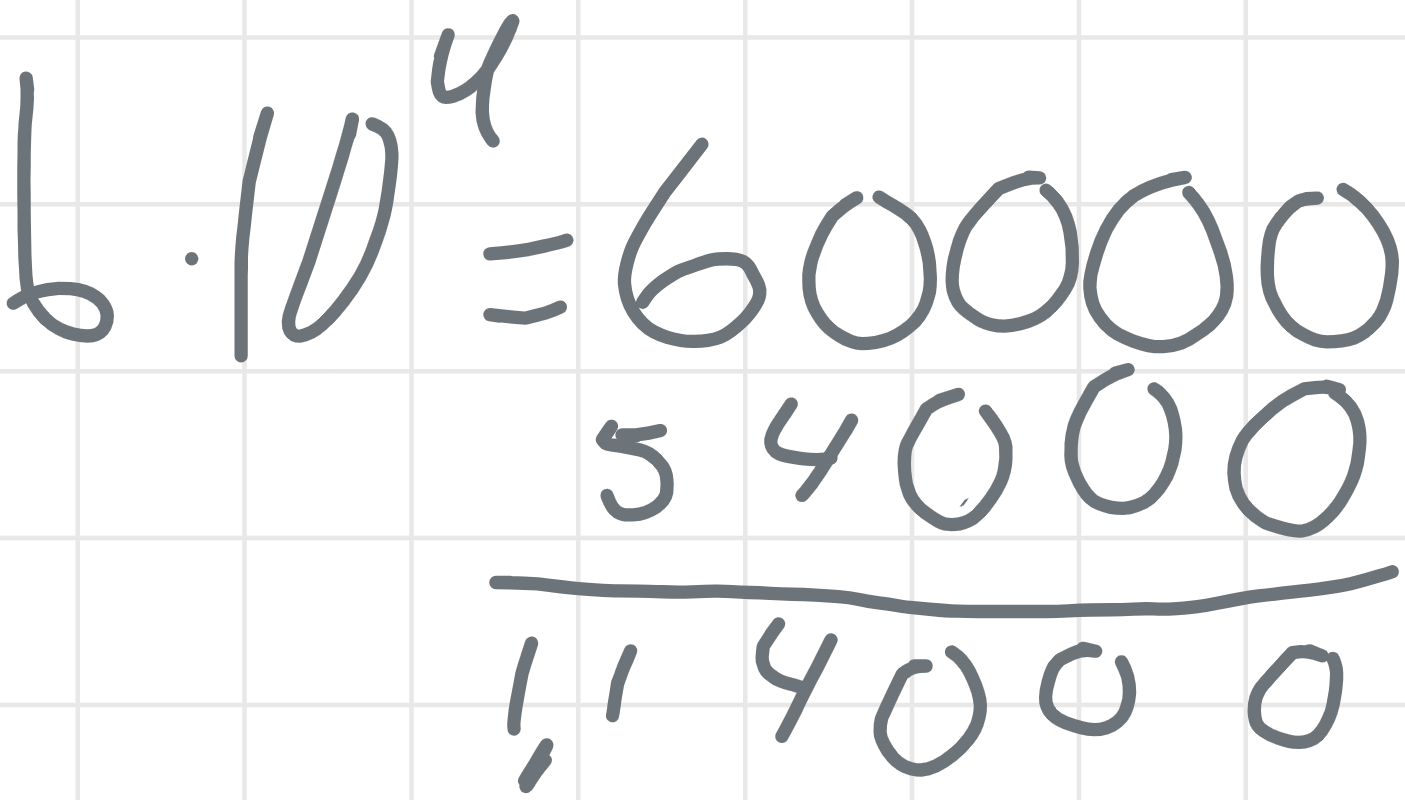 6 · 10⁴ = 60000
54000
1,14000